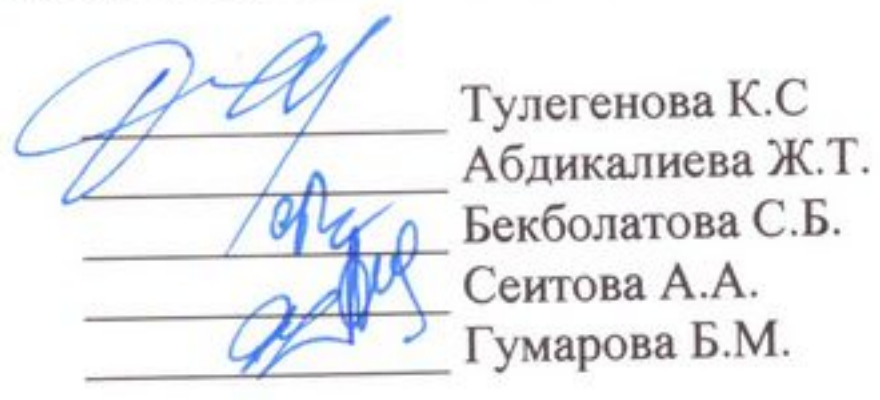 Тулегенова К.С
Абдикалиева Ж.Т.
Бекболатова С.Б.
Сеитова А.А.
Гумарова Б.М.